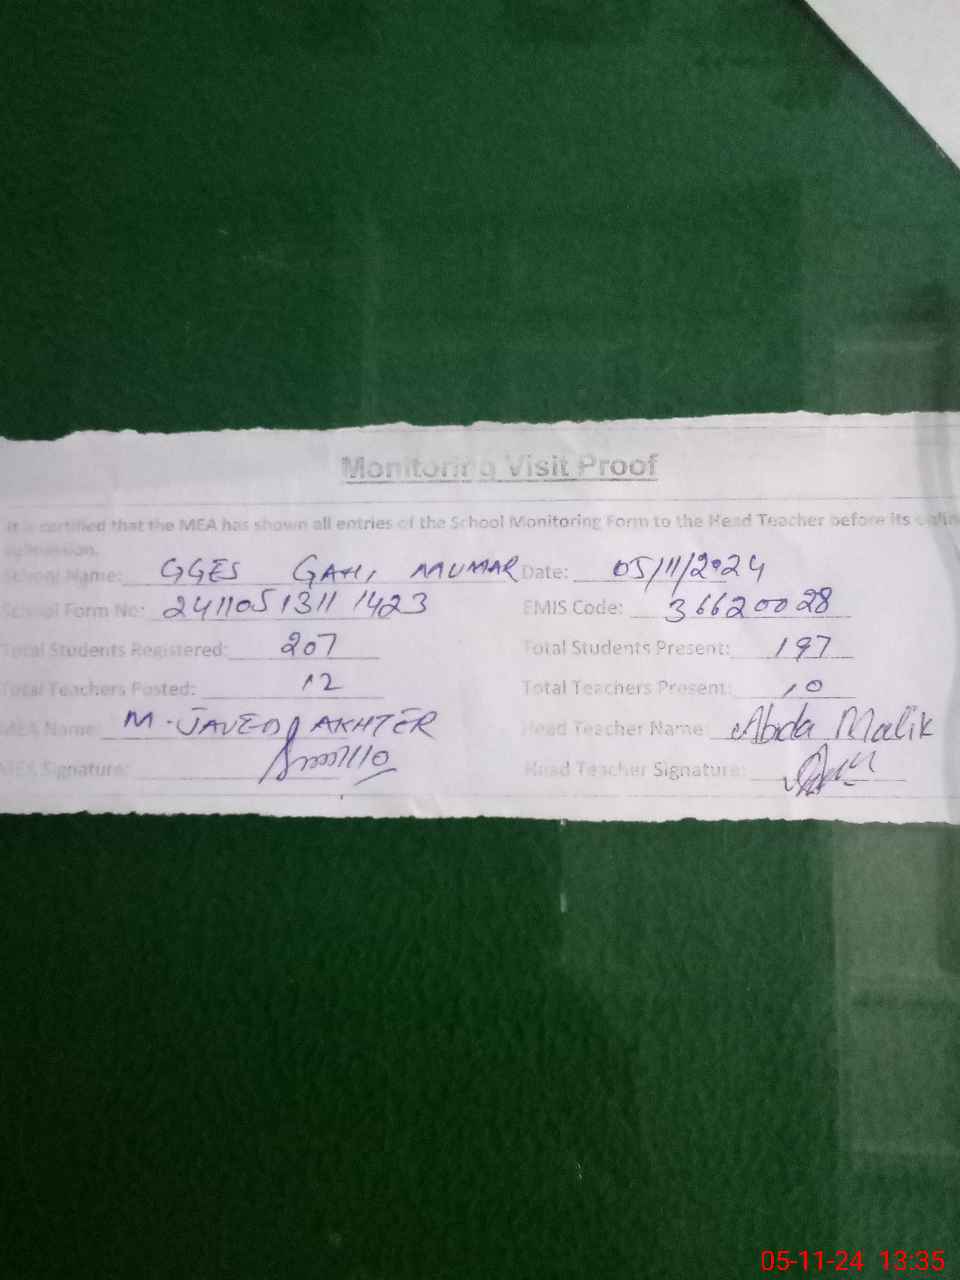 Monitoring Visit Proof
It is certified that the MEA has shown all entries of the School Monitoring Form to the Head Teacher before its online
submission.
School Name: GGES GAHI MUMAR Date: 05/11/2024
School Form No: 2411051311 1423 EMIS Code: 36620028
Total Students Registered: 207 Total Students Present: 197
Total Teachers Posted: 12 Total Teachers Present: 10
MEA Name: M. JAVED AKHTER Head Teacher Name: Abida Malik
MEA Signature: Head Teacher Signature:
05-11-24 13:35